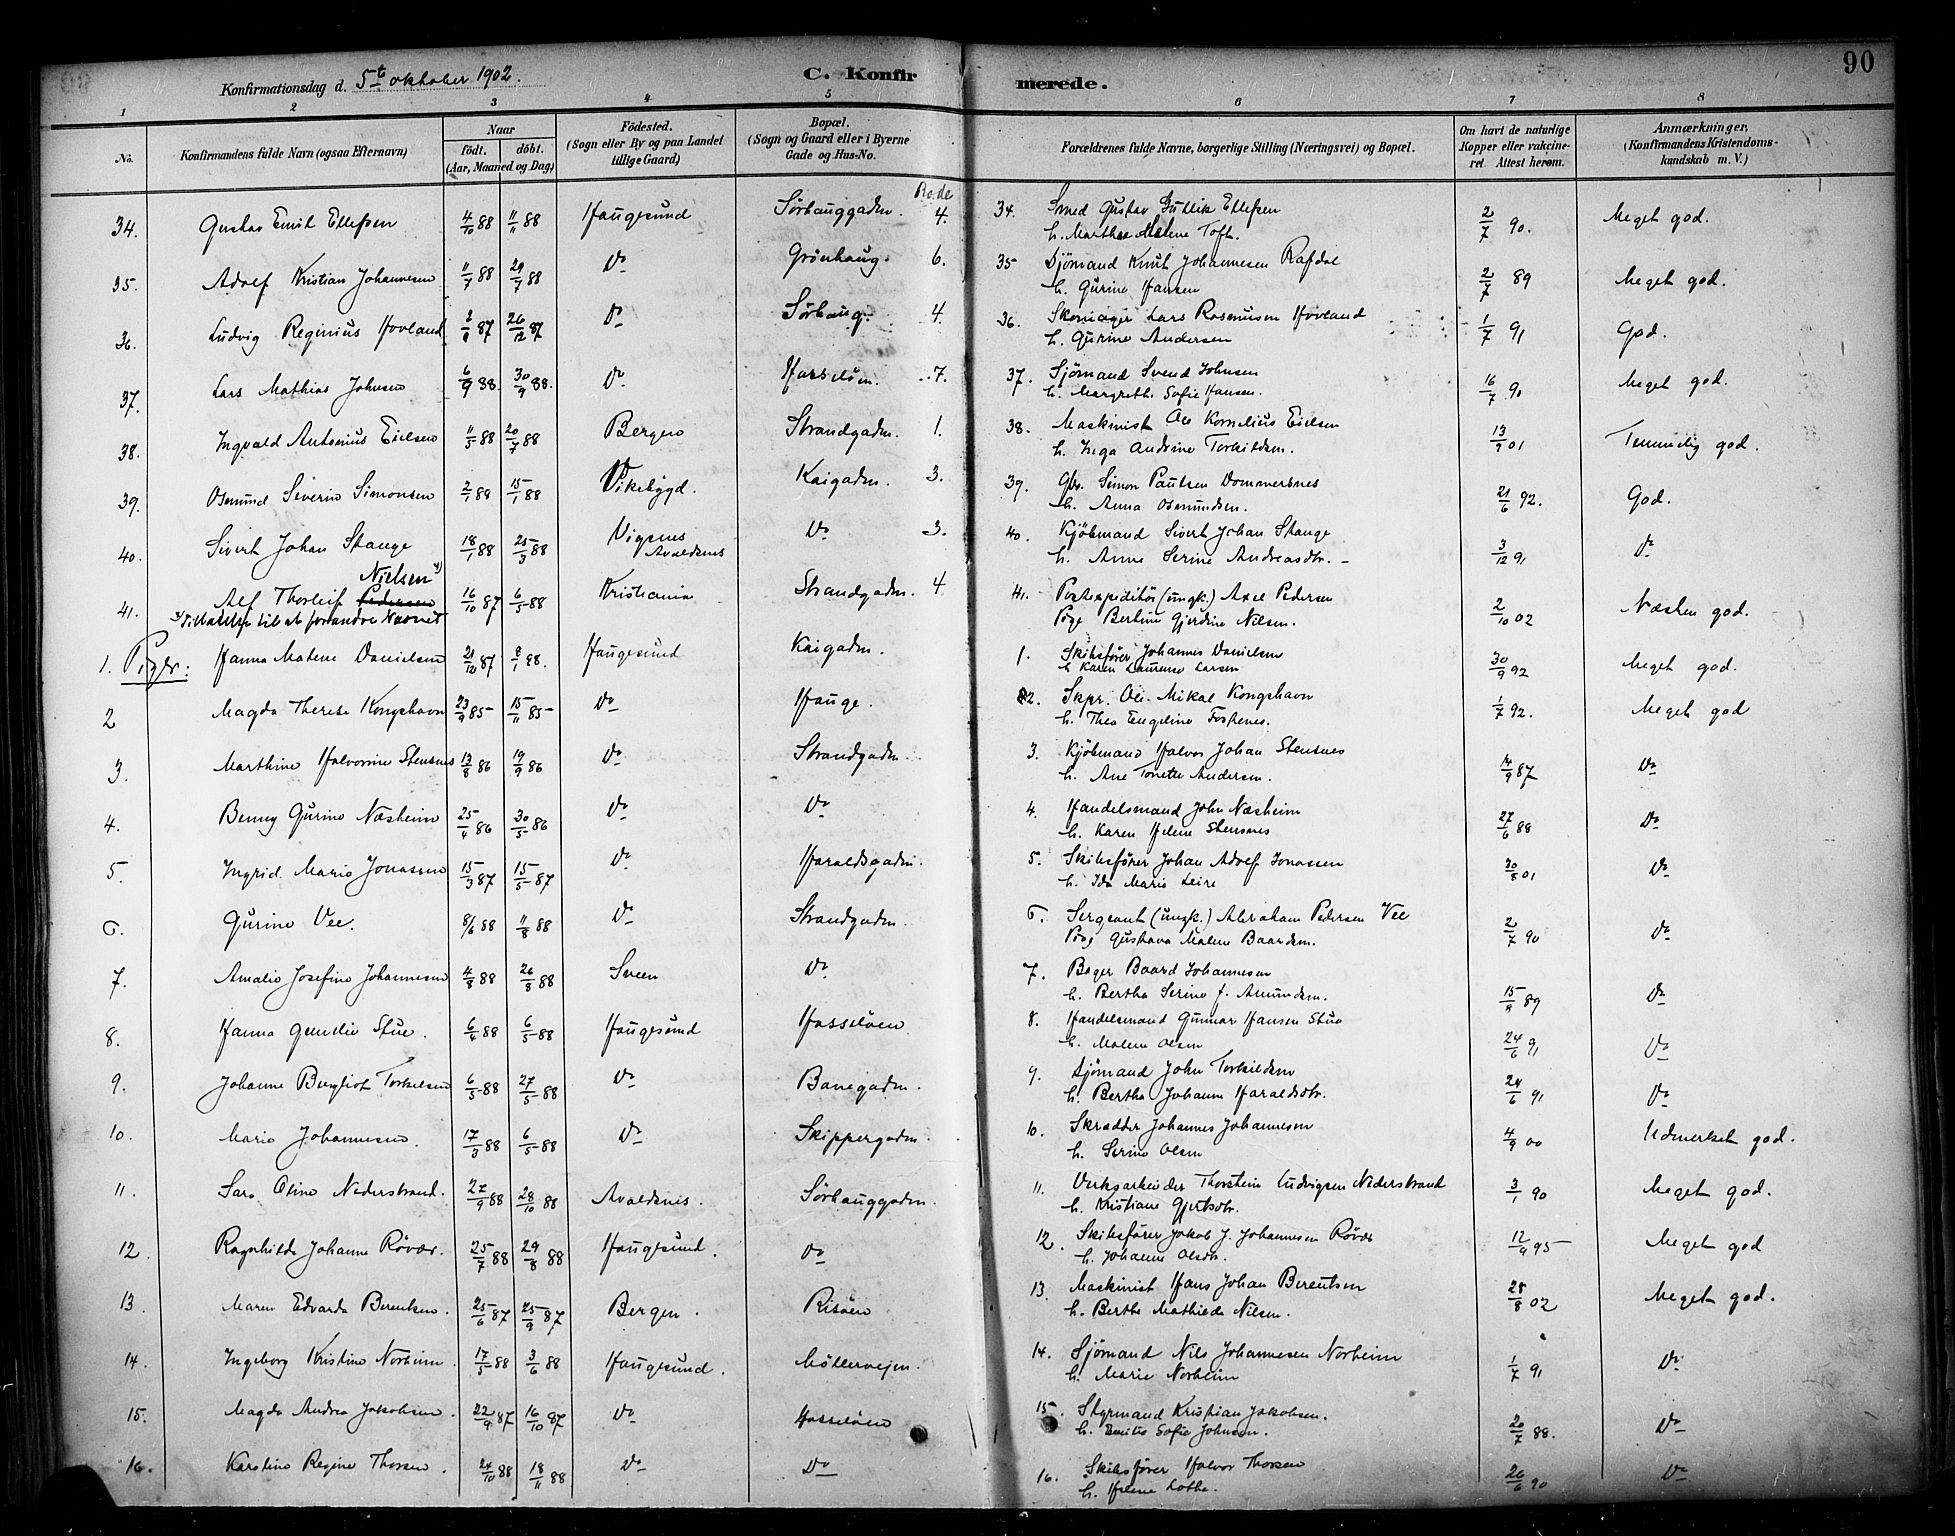 90
Konfirmationsdag d. 5te oktober 1902.
C. Konfirmerede.
1 2 3 4 5 6 7 8
No.
Konfirmandens fulde Navn (ogsaa Efternavn)
Naar
födt. döbt.
(Aar, Maaned og Dag)
Födested.
(Sogn eller By og paa Landet tillige Gaard)
Bopæl.
(Sogn og Gaard eller i Byerne Gade og Hus-No.
Forældrenes fulde Navne, borgerlige Stilling (Næringsvei) og Bopæl.
Om havt de naturlige Kopper eller vakcineret. Attest herom.
Anmærkninger.
(Konfirmandens Kristendomskundskab m. V.)
Rode
34. Gustav Emil Ellefsen 4/10 88 11/11 88 Haugesund Sørhauggaden. 4. 34. Smed Gustav Gutlik Ellefsen 2/7 90. Meget god.
h. Marthe Malene Toft.
35. Adolf Kristian Johannesen 11/7 88 29/7 88 Do Grönhaug. 6. 35 Sjömand Knut Johannesen Rafdal 2/7 89 Meget god.
h. Gurine Hansen
36. Ludvig Reginius Hovland 87 26/12 87 Do Sørhaug. 4. 36. Skomager Lars Rasmusen Hovland 1/7 91 God.
h. Gurine Andersen
37. Lars Mathias Johnsen 6/9 88. 30/9 88. Do Hasselöen. 7. 37. Sjömand Svend Johnsen 16/7 90 Meget god.
h. Margrethe Sofie Hansen.
38. Ingvald Antonius Eielsen 11/5 88 20/7 88 Bergen Strandgaden. 1. 38. Maskinist Ole Kornelius Eielsen 13/9 01 Temmelig god.
h. Inga Andrine Torkildsen.
39. Osmund Severin Simonsen 2/1 88 15/1 88 Vikebygd. Kaigaden. 3. 39. Gbr. Simon Paulsen Dommersnes 21/6 92. God.
h. Anna Osmundsen.
40. Sivert Johan Stange 18/1 88 25/3 88 Vigsnes Avaldsnes Do 3. 40. Kjöbmand Sivert Johan Stange 3/12 91 Do
h. Anne Serine Andreasdtr.
Nielsen x)
41. Alf Thorleif Pedersen 16/10 87 6/5 88 Kristiania Strandgaden. 4 41. Postexpeditör (ungk.) Axel Pedersen 2/10 02 Næsten god.
x) Tilladelse til at forandre Navnet
Pige Bertine Gjerdine Nilsen.
Piger:
1. Hanna Malene Danielsen 21/12 87 8/1 88. Haugesund Kaigaden. 1. Skibsförer Johannes Danielsen 30/9 92 Meget god.
h Karen Laurense Larsen
2 Magda Therese Kongshavn 23/9 85 15/11 85 Do Hauge. 2. Skpr. Ole Mikal Kongshavn 1/7 92. Meget god
h. Thea Engeline Fostenes.
3. Marthine Halvorine Stensnes 13/8 86 19/9 86 Do Strandgaden. 3. Kjöbmand Halvor Johan Stensnes 14/9 87 Do
h. Ane Tonette Andersen.
4. Benny Gurine Næsheim 25/4 86 30/5 86 Do Do 4. Handelsmand John Næsheim 27/6 88 Do
h. Karen Helene Stensnes
5. Ingrid Marie Jonassen 15/3 87 15/5 87 Do Haraldsgaden. 5. Skibsförer Johan Adolf Jonassen 30/8 01 Do
h. Ida Marie Leire
6. Gurine Vee. 8/6 88 11/8 88 Do Strandgaden. 6. Sergeant (ungk.) Abraham Pedersen Vee 2/7 90 Do
Pige Gustava Malene Baardsen.
7. Amalie Josefine Johannesen 4/8 88 26/8 88 Sveen Do 7. Bager Baard Johannesen 15/9 89 Do
h. Bertha Serine f. Amundsen.
8. Hanna Gundie Stue. 6/4 88 6/5 88 Haugesund Hasselöen. 8. Handelsmand Gunnar Hansen Stue 24/6 91 Do
h. Malene Olsen
9. Johanne Bergliot Torkelsen 6/5 88 27/5 88 Do Banegaden. 9. Sjömand John Torkildsen 24/6 91 Do
h. Bertha Johanne Haraldsdtr.
10. Marie Johannesen. 17/3 88 6/5 88 Do Skippergaden. 10. Skrædder Johannes Johannesen 4/9 00 Udmerket god.
h. Serine Olsen
11. Sara Oline Nederstrand. 27/9 88 28/10 88 Avaldsnes. Sørhauggaden. 11. Verksarbeider Thorstein Ludvigsen Nederstrand 3/1 90 Meget god.
h. Kristiane Gjertsdtr.
12. Ragnhilda Johanne Rövær. 25/7 88 29/8 88 Haugesund. Do 12. Skibsförer Jakob J. Johannesen Rövær 12/9 95 Meget god
h. Johanne Olsdtr.
13. Maren Edvarda Berentsen. 25/6 87 25/9 87 Bergen. Risöen 13. Maskinist Hans Johan Berentsen 28/8 02 Meget god.
h. Berthe Mathilde Nilsen.
14. Ingeborg Kristine Norheim. 17/5 88 3/6 88 Haugesund. Möllervejen. 14. Sjömand Nils Johannesen Norheim 1/7 91 Do
h. Marie Norheim
15. Magda Andrea Jakobsen. 22/9 87 16/10 87 Do Hasselöen 15. Styrmand Kristian Jakobsen. 20/7 88. Do
h. Emilie Sofie Johnsen.
16. Karoline Regine Thorsen. 24/10 88 18/11 88 Do Do 16. Skibsförer Halvor Thorsen 26/6 90 Do
h. Helene Lothe.